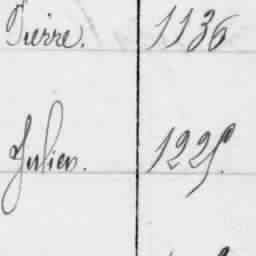 Pierre. 1136
Julien. 1225.